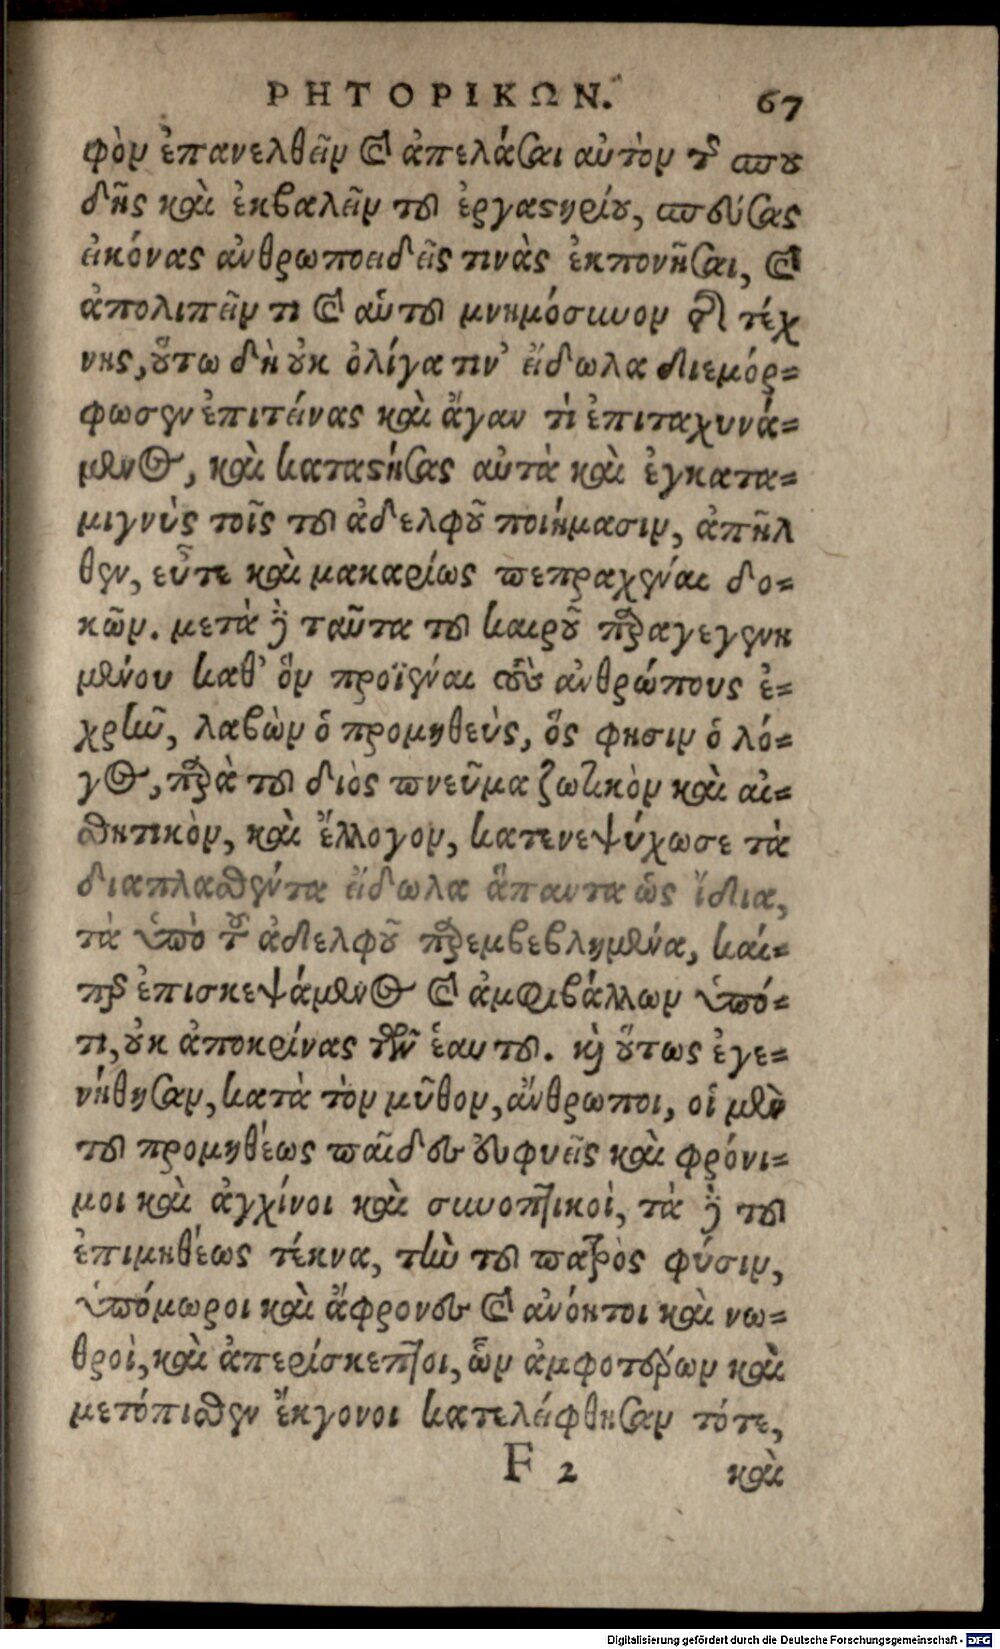 ΡΗΤΟΡΙΚΩΝ. 67
φὸν ἐπανελθεῖν καὶ ἀπελάσαι αὐτὸν τῆς σπου
δῆς καὶ ἐκβαλεῖν τοῦ ἐργαστηρίου, σπεύσας
εἰκόνας ἀνθρωποειδεῖς τινὰς ἐκπονῆσαι, καὶ
ἀπολιπεῖν τι καὶ αὑτοῦ μνημόσυνον τῆς τέχ
νης, οὕτω δὴ οὐκ ὀλίγα τιν’ εἴδωλα διεμόρ-
φωσεν ἐπιτείνας καὶ ἄγαν τὶ ἐπιταχυνά-
μενος, καὶ καταστήσας αὐτὰ καὶ ἐγκατα-
μιγνὺς τοῖς τοῦ ἀδελφοῦ ποιήμασιν, ἀπῆλ
θεν, εὖτε καὶ μακαρίως πεπραχέναι δο-
κῶν. μετὰ δὲ ταῦτα τοῦ καιροῦ παραγεγενη
μένου καθ’ ὃν προϊέναι τοὺς ἀνθρώπους ἐ-
χρῆν, λαβὼν ὁ προμηθεὺς, ὥς φησιν ὁ λό-
γος, παρὰ τοῦ διὸς πνεῦμα ζωτικὸν καὶ αἰ-
σθητικὸν, καὶ ἔλλογον, κατενεψύχωσε τὰ
διαπλασθέντα εἴδωλα ἅπαντα ὡς ἴδια,
τὰ ὑπὸ τοῦ ἀδελφοῦ παρεμβεβλημένα, καί-
περ ἐπισκεψάμενος καὶ ἀμφιβάλλων ὑπό-
τι, οὐκ ἀποκρίνας τῶν ἑαυτοῦ. καὶ οὕτως ἐγε-
νήθησαν, κατὰ τὸν μῦθον, ἄνθρωποι, οἱ μὲν
τοῦ προμηθέως παῖδες εὐφυεῖς καὶ φρόνι-
μοι καὶ ἀγχίνοι καὶ συνοπτικοὶ, τὰ δὲ τοῦ
ἐπιμηθέως τέκνα, τὴν τοῦ πατρὸς φύσιν,
ὑπόμωροι καὶ ἄφρονες καὶ ἀνόητοι καὶ νω-
θροὶ, καὶ ἀπερίσκεπτοι, ὧν ἀμφοτέρων καὶ
μετόπισθεν ἔκγονοι κατελείφθησαν τότε,
F 2 καὶ
Digitalisierung gefördert durch die Deutsche Forschungsgemeinschaft - DFG